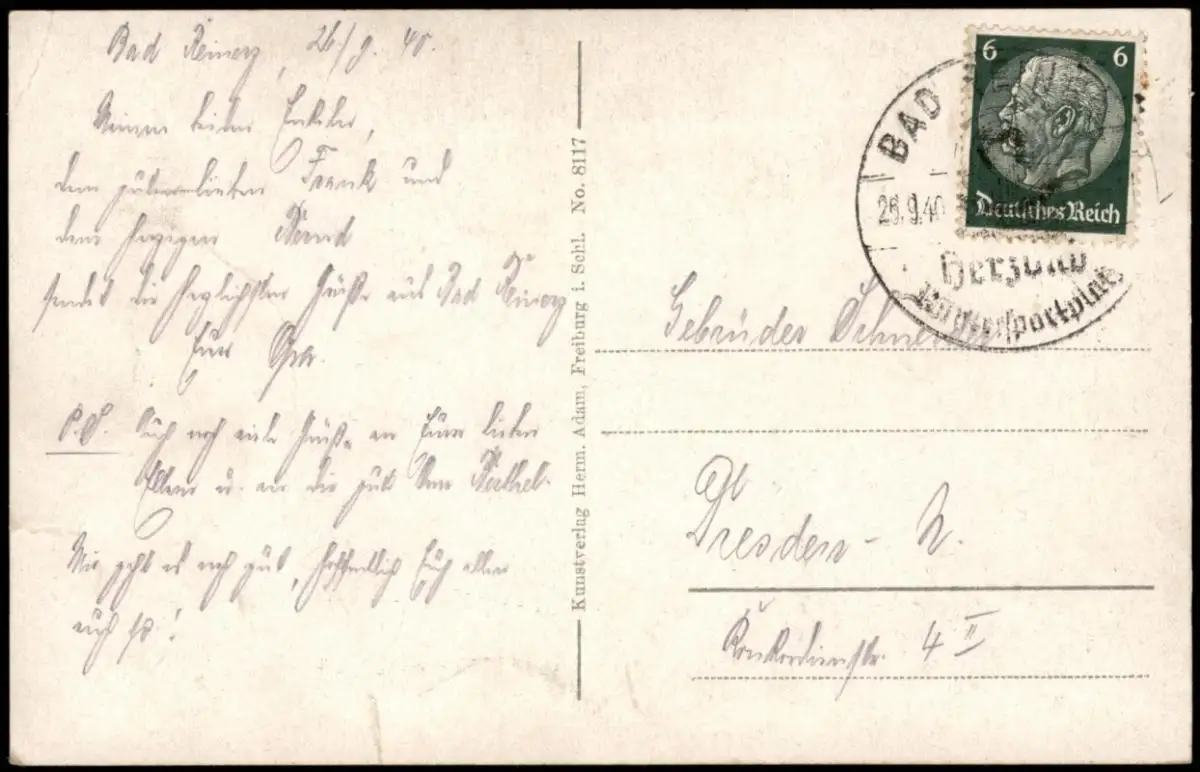 Bad Reinerz, 26/9. 40.
Meinen beiden Enkeln,
dem zuckersüßen Frank und
dem herzigen Bernd
sendet die herzlichsten Grüße aus Bad Reinerz
Euer Opa.
P.S. Auch noch viele Grüße an Eure lieben
Eltern u. an die gute Berthel.
Mir geht es noch gut, hoffentlich Euch allen
auch so!
Kunstverlag Herm. Adam, Freiburg i. Schl. No. 8117
6 6
Deutsches Reich
BAD
26.9.40
Herzbad
Wintersportplatz
Gebrüder Schneider
Dresden - N.
Konkordienstr. 4 II